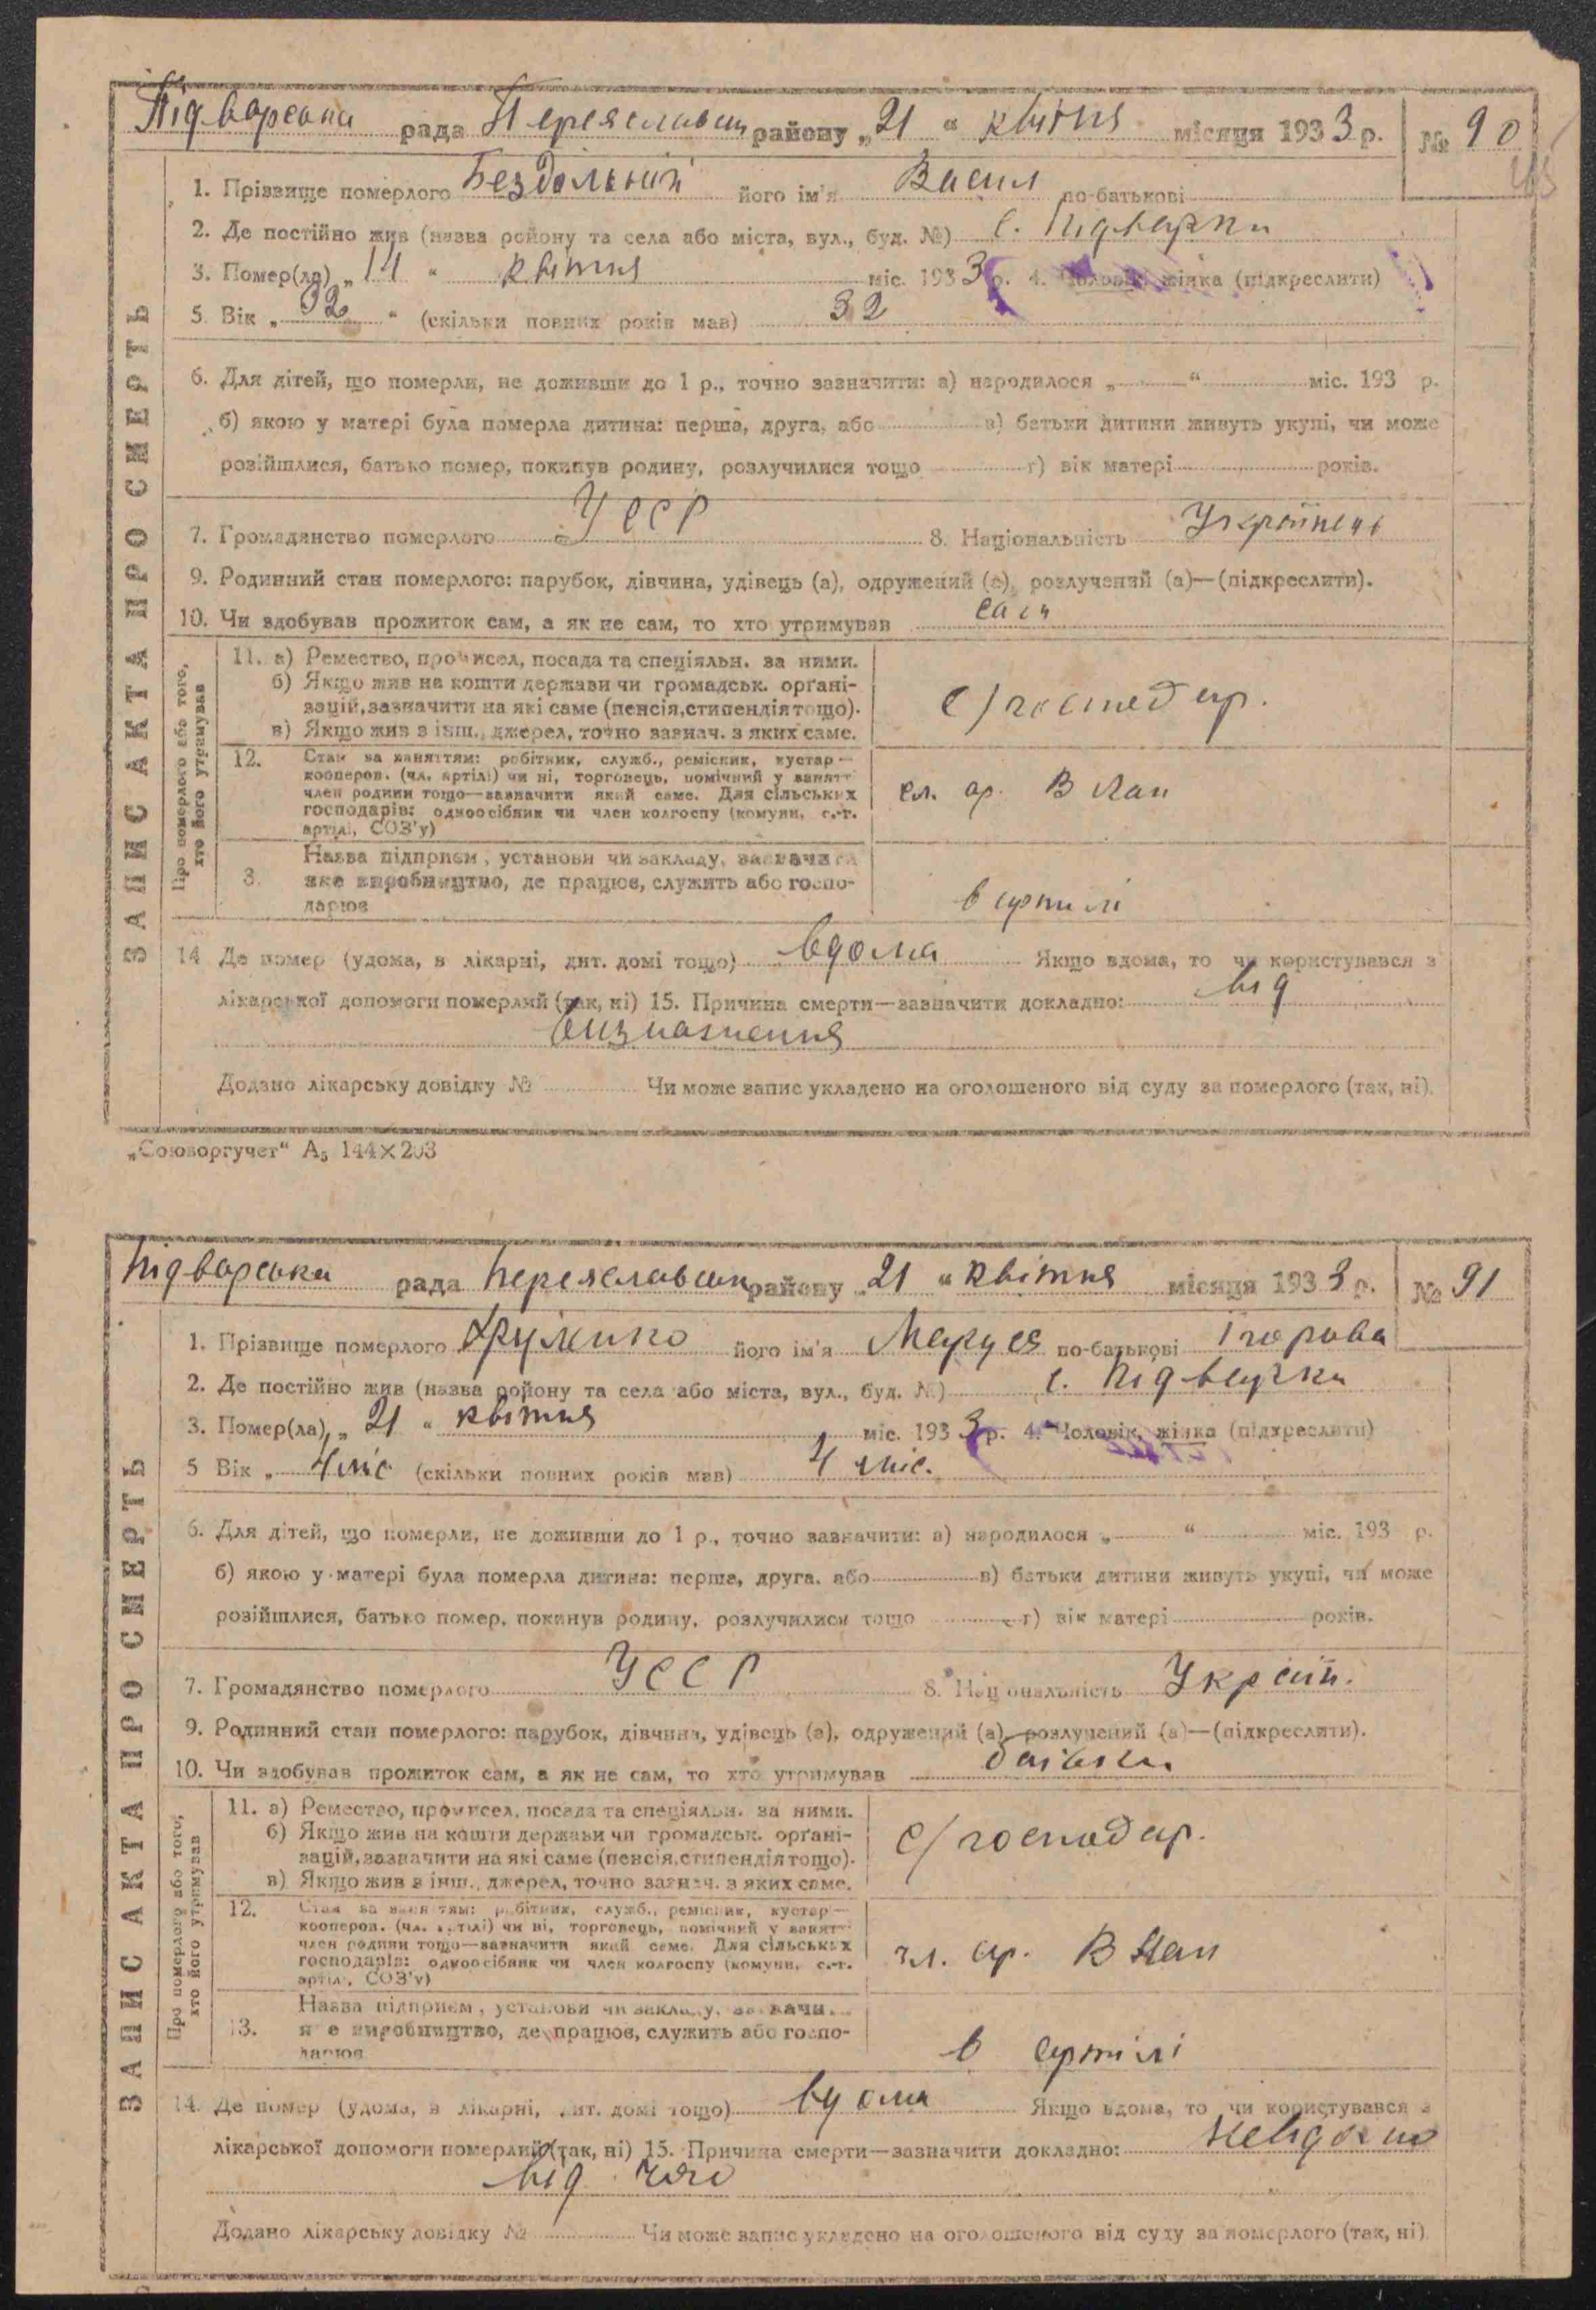 Підварська рада Переяславськ району „21 “ квітня місяця 1933 р. № 90
1. Прізвище померлого Бездольний його ім'я Васил по-батькові
2. Де постійно жив (назва ройону та села або міста, вул., буд. №) с. Підварки
3. Помер(ла) „ “ квітня міс. 1933 р. 4. Чоловік, жінка (підкреслити)
5. Вік „ 32 “ (скільки повних років мав) 32
6. Для дітей, що померли, не доживши до 1 р., точно зазначити: а) народилося „ “ міс. 193 р.
б) якою у матері була померла дитина: перша, друга, або в) батьки дитини живуть укупі, чи може
розійшлися, батько помер, покинув родину, розлучилися тощо г) вік матері років.
7. Громадянство померлого УССР 8. Національність Українець
9. Родинний стан померлого: парубок, дівчина, удівець (а), одружений (а), розлучений (а)—(підкреслити).
10. Чи здобував прожиток сам, а як не сам, то хто утримував сам
ЗАПИС АКТА ПРО СМЕРТЬ
Про померлого або того, хто його утримував
11. а) Ремество, промисел, посада та спеціяльн. за ними.
б) Якщо жив на кошти держави чи громадськ. орґані-
зацій, зазначити на які саме (пенсія, стипендія тощо).
в) Якщо жив з інш., джерел, точно зазнач. з яких саме.
с/господар.
12. Стан за заняттям: робітник, служб., ремісник, кустар—
кооперов. (чл. артілі) чи ні, торговець, помічний у занятт
член родини тощо—зазначити який саме. Для сільських
господарів: одноосібник чи член колгоспу (комуни, с.-г.
артілі, СОЗ'у)
чл. ар. В Лан
3. Назва підприєм, установи чи закладу, зазначити
яке виробництво, де працює, служить або госпо-
дарює
в артилі
14 Де помер (удома, в лікарні, дит. домі тощо) вдома Якщо вдома, то чи користувався з
лікарської допомоги померлий (так, ні) 15. Причина смерти—зазначити докладно: від
Додано лікарську довідку № Чи може запис укладено на оголошеного від суду за померлого (так, ні).
„Союзоргучет“ А₅ 144×203
Підварська рада Переяславськ району „21 “ квітня місяця 1933 р. № 91
1. Прізвище померлого його ім'я Маруся по-батькові
2. Де постійно жив (назва ройону та села або міста, вул., буд. №) с. Підварки
3. Помер(ла) „ 21 “ квітня міс. 1933 р. 4. Чоловік, жінка (підкреслити)
5 Вік „ 4 міс (скільки повних років мав) 4 міс.
6. Для дітей, що померли, не доживши до 1 р., точно зазначити: а) народилося „ “ міс. 193 р.
б) якою у матері була померла дитина: перша, друга, або в) батьки дитини живуть укупі, чи може
розійшлися, батько помер, покинув родину, розлучилися тощо г) вік матері років.
7. Громадянство померлого УССР 8. Національність Україн.
9. Родинний стан померлого: парубок, дівчина, удівець (а), одружений (а), розлучений (а)—(підкреслити).
10. Чи здобував прожиток сам, а як не сам, то хто утримував батьки
ЗАПИС АКТА ПРО СМЕРТЬ
Про померлого або того, хто його утримував
11. а) Ремество, промисел, посада та спеціяльн. за ними.
б) Якщо жив на кошти держави чи громадськ. орґані-
зацій, зазначити на які саме (пенсія, стипендія тощо).
в) Якщо жив з інш., джерел, точно зазнач. з яких саме.
с/господар.
12. Стан за заняттям: робітник, служб., ремісник, кустар—
кооперов. (чл. артілі) чи ні, торговець, помічний у занятт
член родини тощо—зазначити який саме. Для сільських
господарів: одноосібник чи член колгоспу (комуни, с.-г.
артілі, СОЗ'у)
чл. ар. В Лан
13. Назва підприєм, установи чи закладу, зазначи
яке виробництво, де працює, служить або госпо-
дарює
в артілі
14. Де помер (удома, в лікарні, дит. домі тощо) вдома Якщо вдома, то чи користувався з
лікарської допомоги померлий (так, ні) 15. Причина смерти—зазначити докладно: невідомо
від чого
Додано лікарську довідку № Чи може запис укладено на оголошеного від суду за померлого (так, ні).